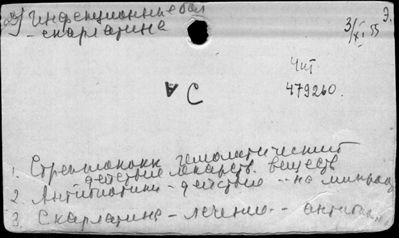 25) Инфекционные бол
- скарлатина
Э.
3/XI 55
Чит
479260.
А С
1. Стрептококк гемолитический
действие лекарств. веществ
2. Антибиотики - действие -- на микроор
3. Скарлатина - лечение -- антиби